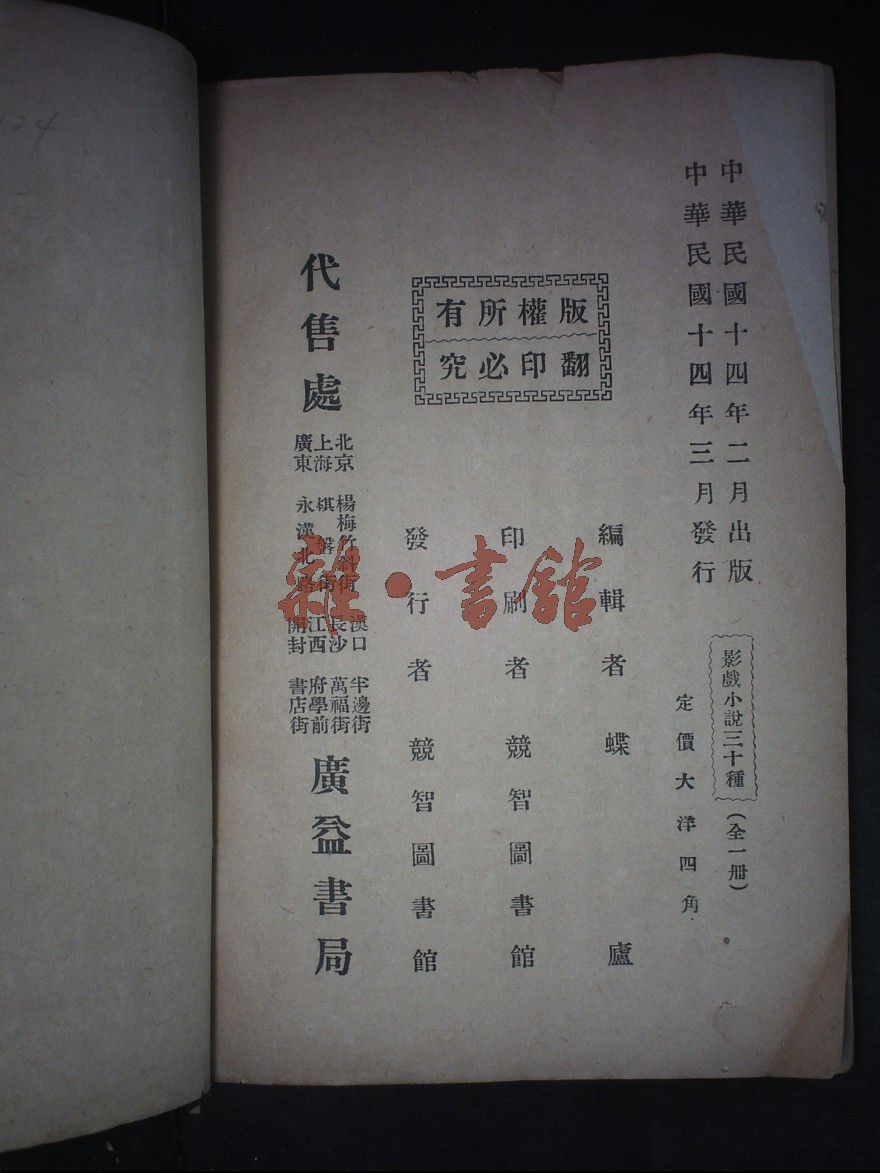 中華民國十四年二月出版
中華民國十四年三月發行
影戲小說三十種
(全一册)
定價大洋四角
版權所有
翻印必究
編輯者 蝶廬
印刷者 競智圖書館
發行者 競智圖書館
代售處
北京 楊梅竹斜街
上海 棋盤街
廣東 永漢北路
漢口 半邊街
長沙 萬福街
江西 府學前
開封 書店街
廣益書局
雜·書館
124